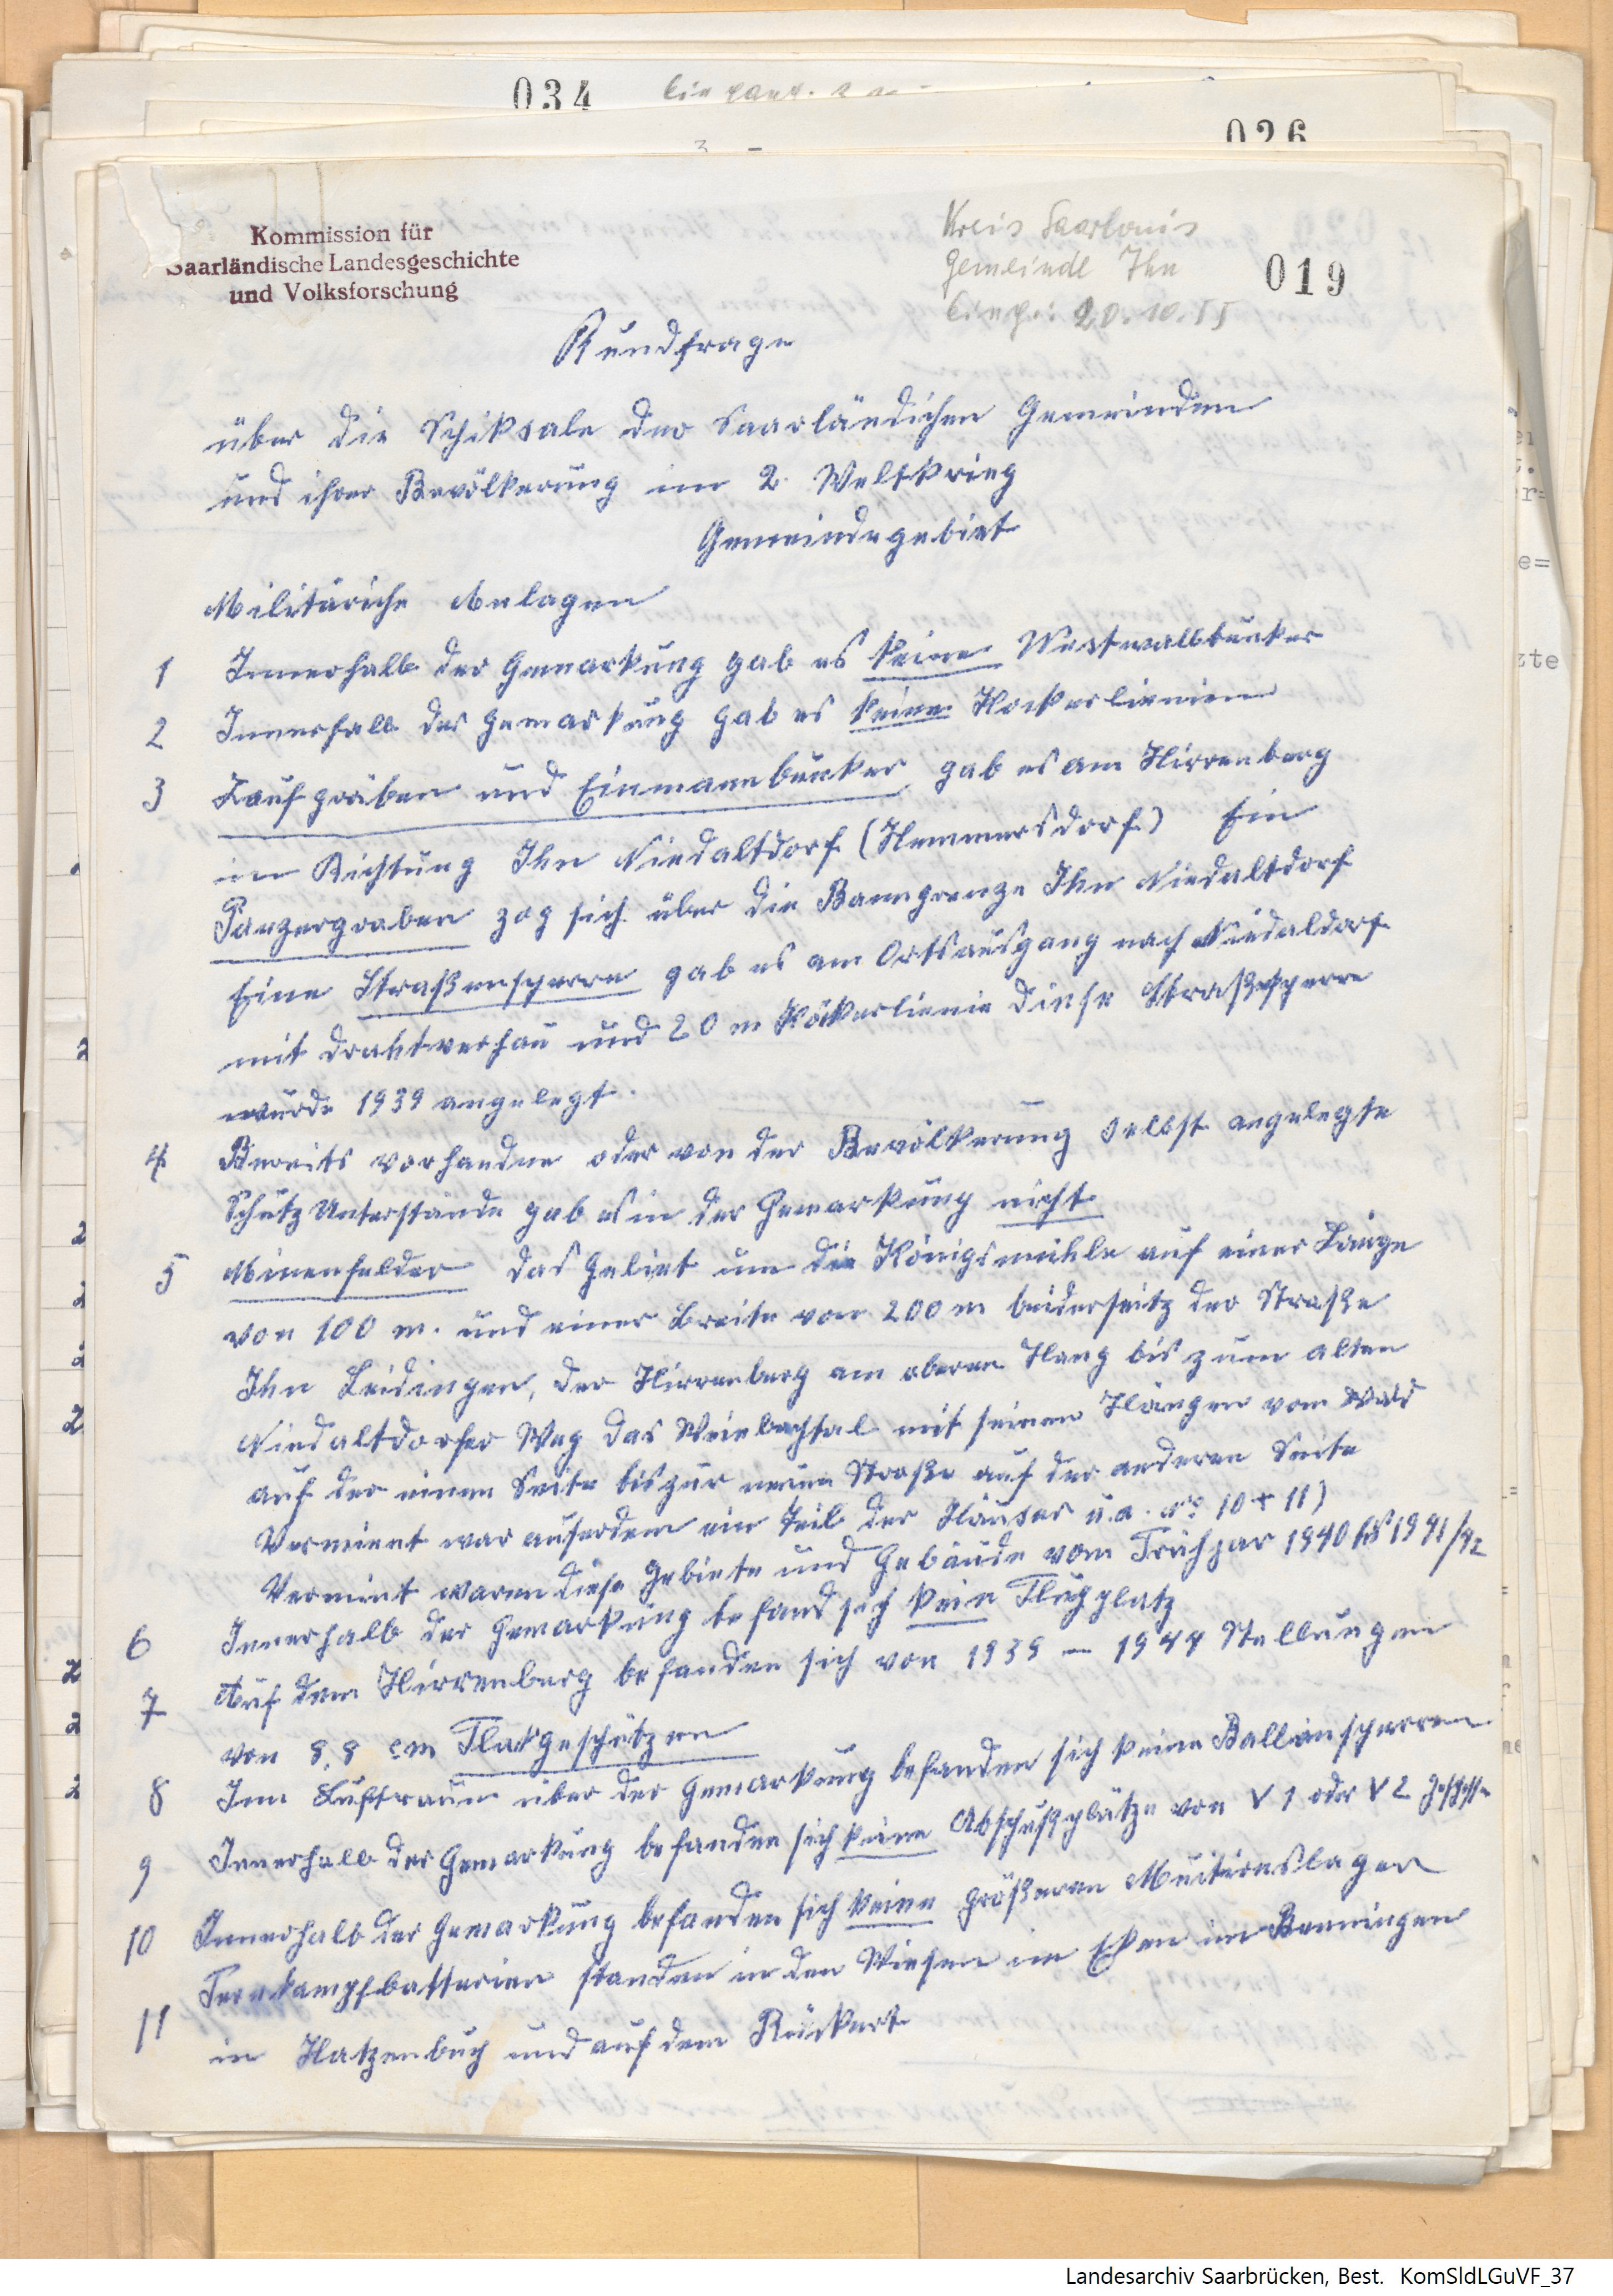 034
026
Kommission für
Saarländische Landesgeschichte
und Volksforschung
Kreis Saarlouis
Gemeinde Ihn
019
Eing.: 20.10.55
Rundfrage
über die Schiksale der Saarländichen Gemeinden
und ihrer Bevölkerung im 2. Weltkrieg
Gemeindegebiet
Militäriche Anlagen
1 Innerhalb der Gemarkung gab es keine Westwallbunker
2 Innerhalb der Gemarkung gab es keine Hockerlienien
3 Laufgräben und Einmannbunker gab es am Hirrenberg
im Richtung Ihn Niedaltdorf (Hemmersdorf) Ein
Panzergraben zog sich über die Banngrenze Ihn Niedaltdorf
Eine Straßensperre gab es am Ortsausgang nach Niedaldorf
mit drahtverhau und 20 m Höckerlienie diese Straßesperre
wurde 1939 angelegt.
4 Bereits vorhandne oder von der Bevölkerung selbst angelegte
Schutz Unterstände gab es in der Gemarkung nicht
5 Minenfelder das Gebiet um die Königsmühle auf einer Länge
von 100 m. und einer Breite von 200 m beiderseitz der Straße
Ihn Leidingen, der Hirrenberg am oberen Hang bis zum alten
Niedaltdorfer Weg das Weinbachtal mit seinen Hängen vom Wald
auf der einen Seite bis zur neuen Straße auf der anderen Seite
Vermient war auserdem ein Teil der Häuser u.a. No 10 + 11)
Vermient waren diese Gebiete und Gebäude vom Frühjar 1940 bis 1941/42
6 Innerhalb der Gemarkung befand sich kein Flugplatz
7 Auf dem Hirrenberg befanden sich von 1939 - 1944 Stellungen
von 8,8 cm Flakgeschützen
8 Inn Luftraum über der Gemarkung befanden sich keine Ballonsperren
9 Innerhalb der Gemarkung befanden sich keine Abschußplätze von V 1 oder V 2 Geschosse
10 Innerhalb der Gemarkung befanden sich keine größeren Munitionslager
11 Fernkampfbatterien standen in den Wiesen im Eken im Benningen
in Hatzenbuch und auf dem Rückert
Landesarchiv Saarbrücken, Best. KomSldLGuVF_37